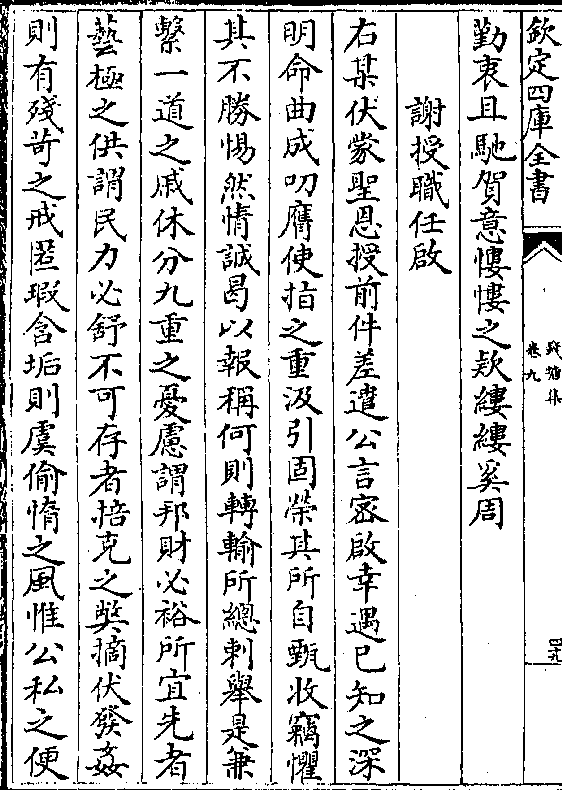 欽定四庫全書
卷九
勤衷且馳賀意慺慺之欵縷縷奚周
謝授職任啟
右某伏蒙聖恩授前件差遣公言宻啟幸遇已知之深
明命曲成叨膺使指之重汲引固榮其所自甄收竊懼
其不勝惕然情誠曷以報稱何則轉輸所總刺舉是兼
繫一道之戚休分九重之憂慮謂邦財必裕所宜先者
藝極之供謂民力必舒不可存者掊克之獘摘伏發姦
則有殘苛之戒匿瑕含垢則虞偷惰之風惟公私之便